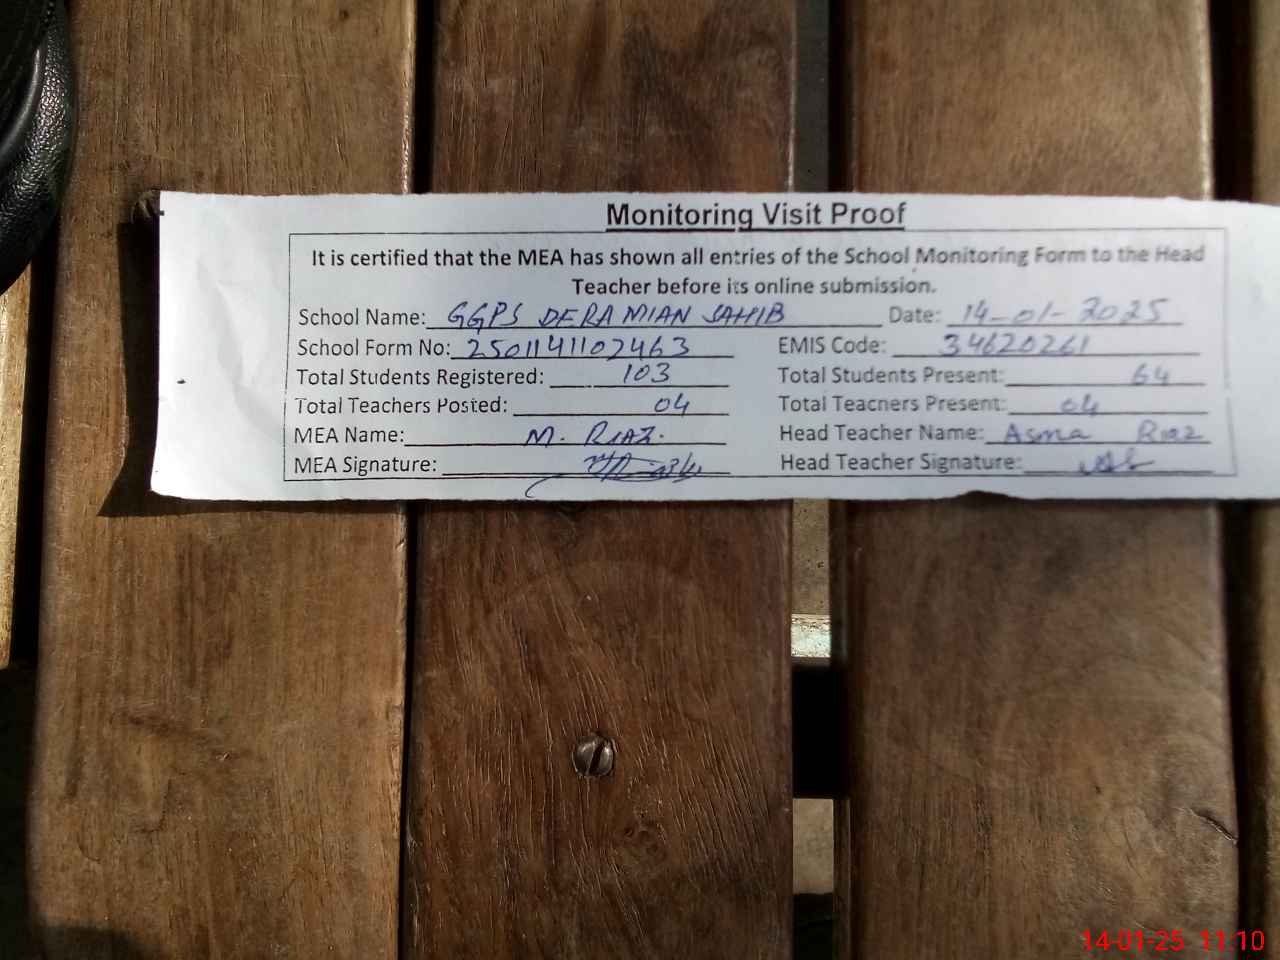 Monitoring Visit Proof
It is certified that the MEA has shown all entries of the School Monitoring Form to the Head
Teacher before its online submission.
School Name: GGPS DERA MIAN SAHIB Date: 14-01-2025
School Form No: 2501141102463 EMIS Code: 34620261
Total Students Registered: 103 Total Students Present: 64
Total Teachers Posted: 04 Total Teachers Present: 04
MEA Name: M. RIAZ. Head Teacher Name: Asma Riaz
MEA Signature: Head Teacher Signature:
14-01-25 11:10